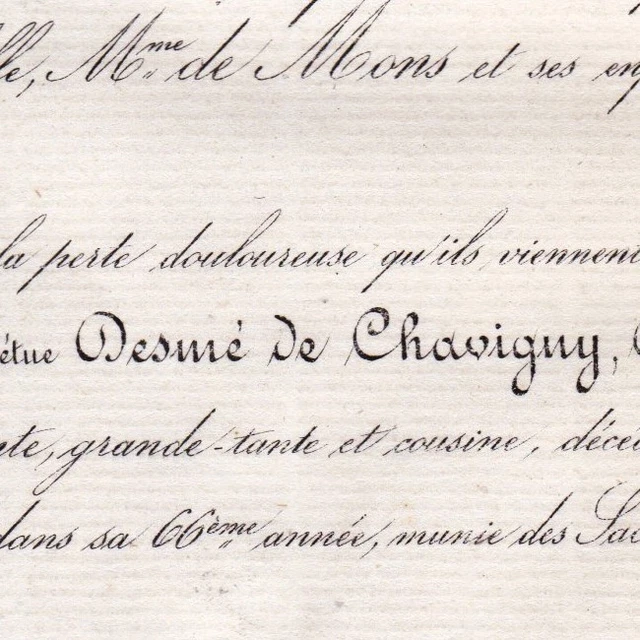 lle, Mme de Mons et ses enf
la perte douloureuse qu'ils viennent
étue Desmé de Chavigny,
nte, grande-tante et cousine, décéd
dans sa 66ème année, munie des Sac